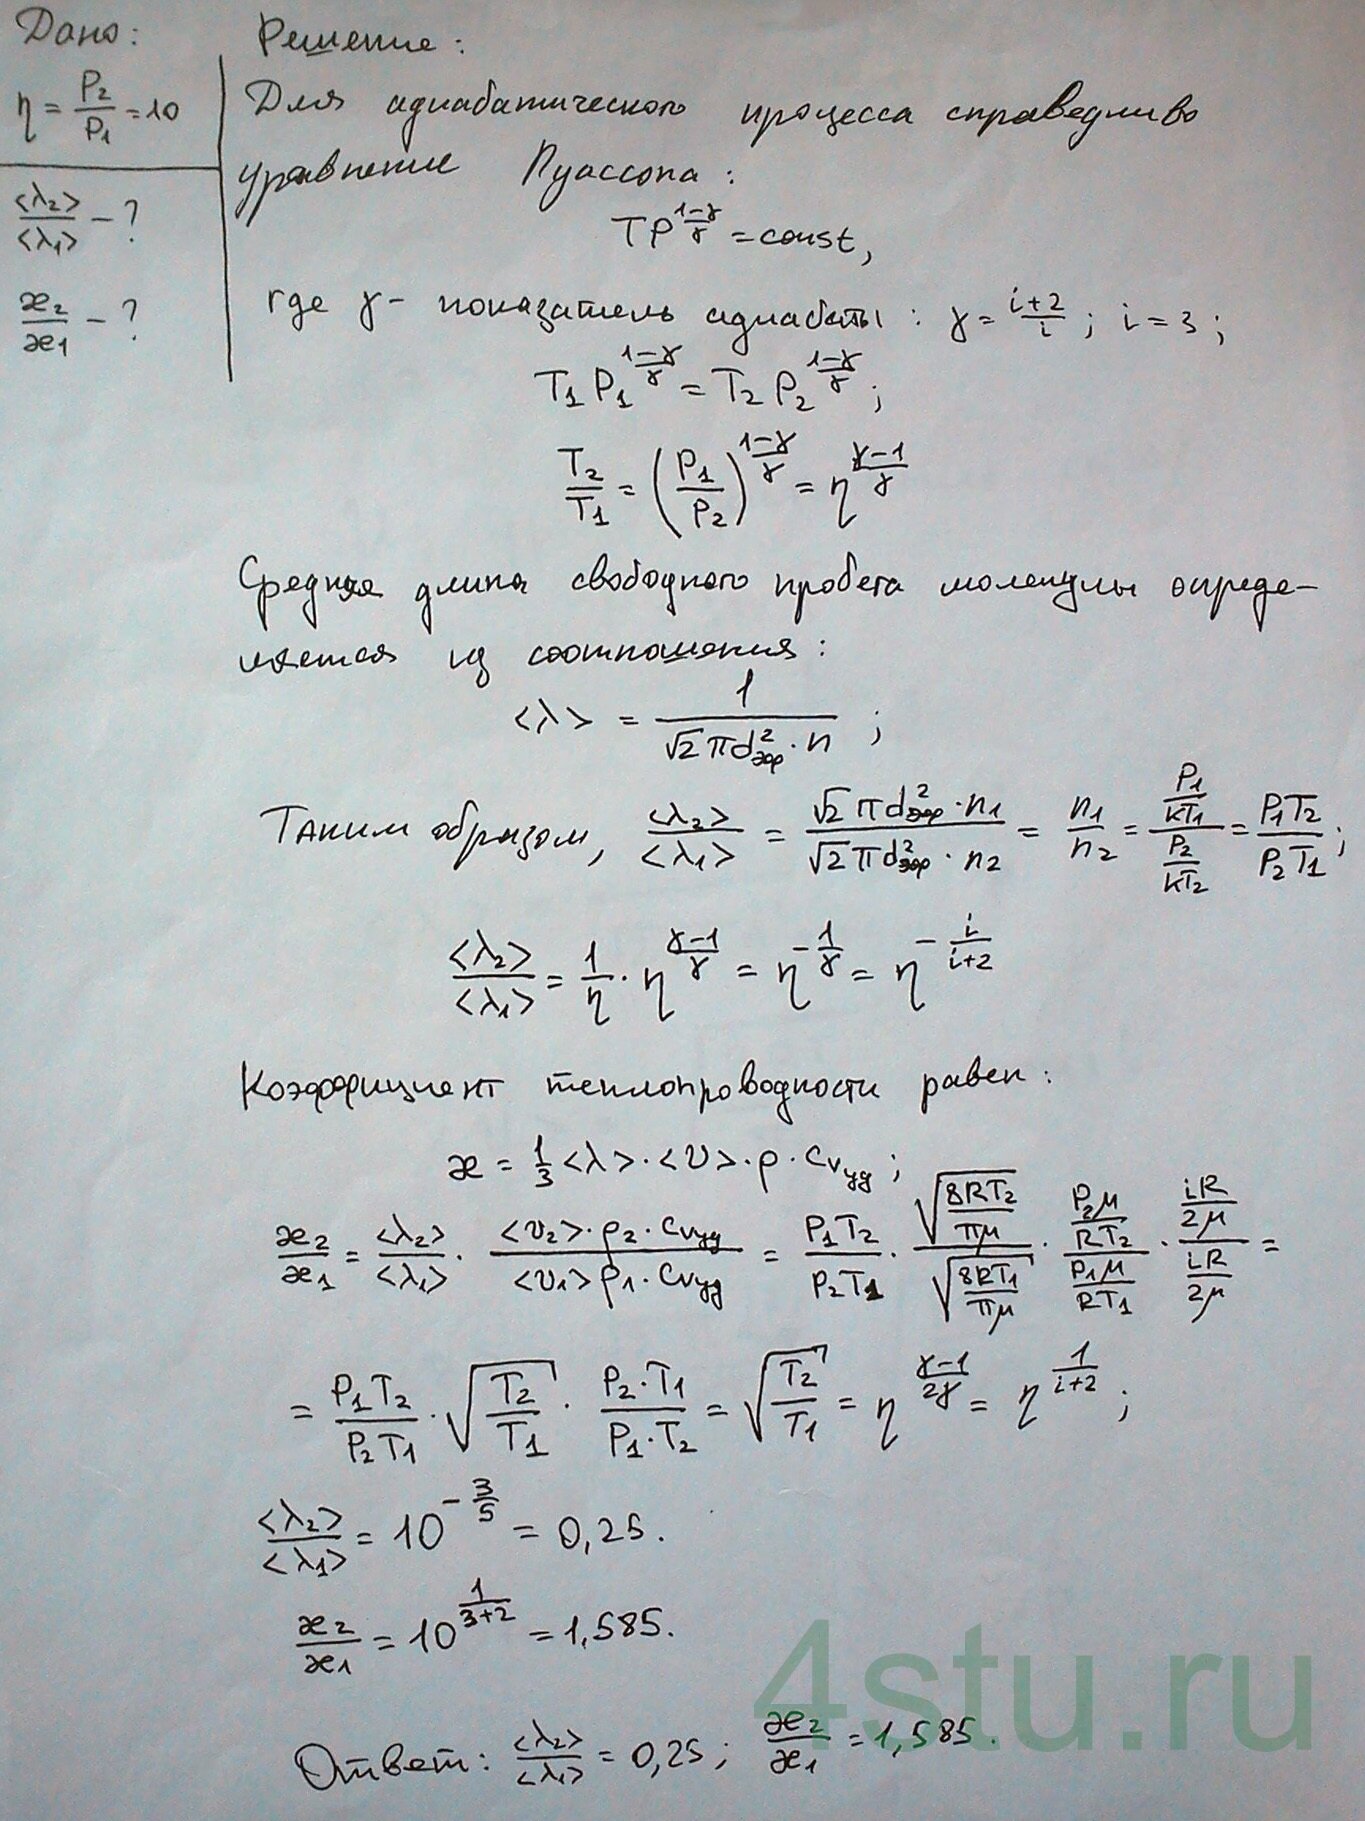 Дано:
η = P₂/P₁ = 10
<λ₂>/<λ₁> - ?
æ₂/æ₁ - ?
Решение:
Для адиабатического процесса справедливо
уравнение Пуассона:
TP^((1-γ)/γ) = const,
где γ - показатель адиабаты: γ = (i+2)/i; i = 3;
T₁P₁^((1-γ)/γ) = T₂P₂^((1-γ)/γ);
T₂/T₁ = (P₁/P₂)^((1-γ)/γ) = η^((γ-1)/γ)
Средняя длина свободного пробега молекулы опреде-
ляется из соотношения:
<λ> = 1/(√2 πd²эф · n);
Таким образом, <λ₂>/<λ₁> = (√2 πd²эф · n₁)/(√2 πd²эф · n₂) = n₁/n₂ = (P₁/kT₁)/(P₂/kT₂) = P₁T₂/P₂T₁;
<λ₂>/<λ₁> = 1/η · η^((γ-1)/γ) = η^(-1/γ) = η^(-i/(i+2))
Коэффициент теплопроводности равен:
æ = 1/3 <λ>·<υ>·ρ·cᵥуд;
æ₂/æ₁ = <λ₂>/<λ₁> · (<υ₂>·ρ₂·cᵥуд)/(<υ₁>ρ₁·cᵥуд) = P₁T₂/P₂T₁ · √(8RT₂/πμ)/√(8RT₁/πμ) · (P₂μ/RT₂)/(P₁μ/RT₁) · (iR/2μ)/(iR/2μ) =
= P₁T₂/P₂T₁ · √(T₂/T₁) · P₂·T₁/P₁·T₂ = √(T₂/T₁) = η^((γ-1)/2γ) = η^(1/(i+2));
<λ₂>/<λ₁> = 10^(-3/5) = 0,25.
æ₂/æ₁ = 10^(1/(3+2)) = 1,585.
Ответ: <λ₂>/<λ₁> = 0,25; æ₂/æ₁ = 1,585.
4stu.ru